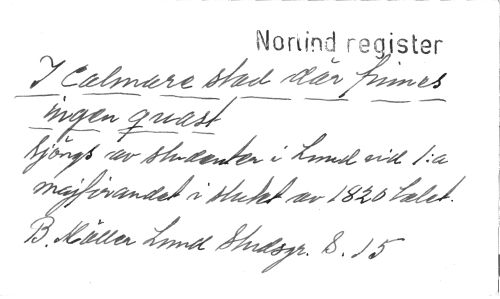 Norlind register
I Calmare stad där finnes
ingen quast
sjöngs av studenter i Lund vid 1:a
majfirandet i slutet av 1820 talet.
B. Möller Lund Studsgr. S. 15